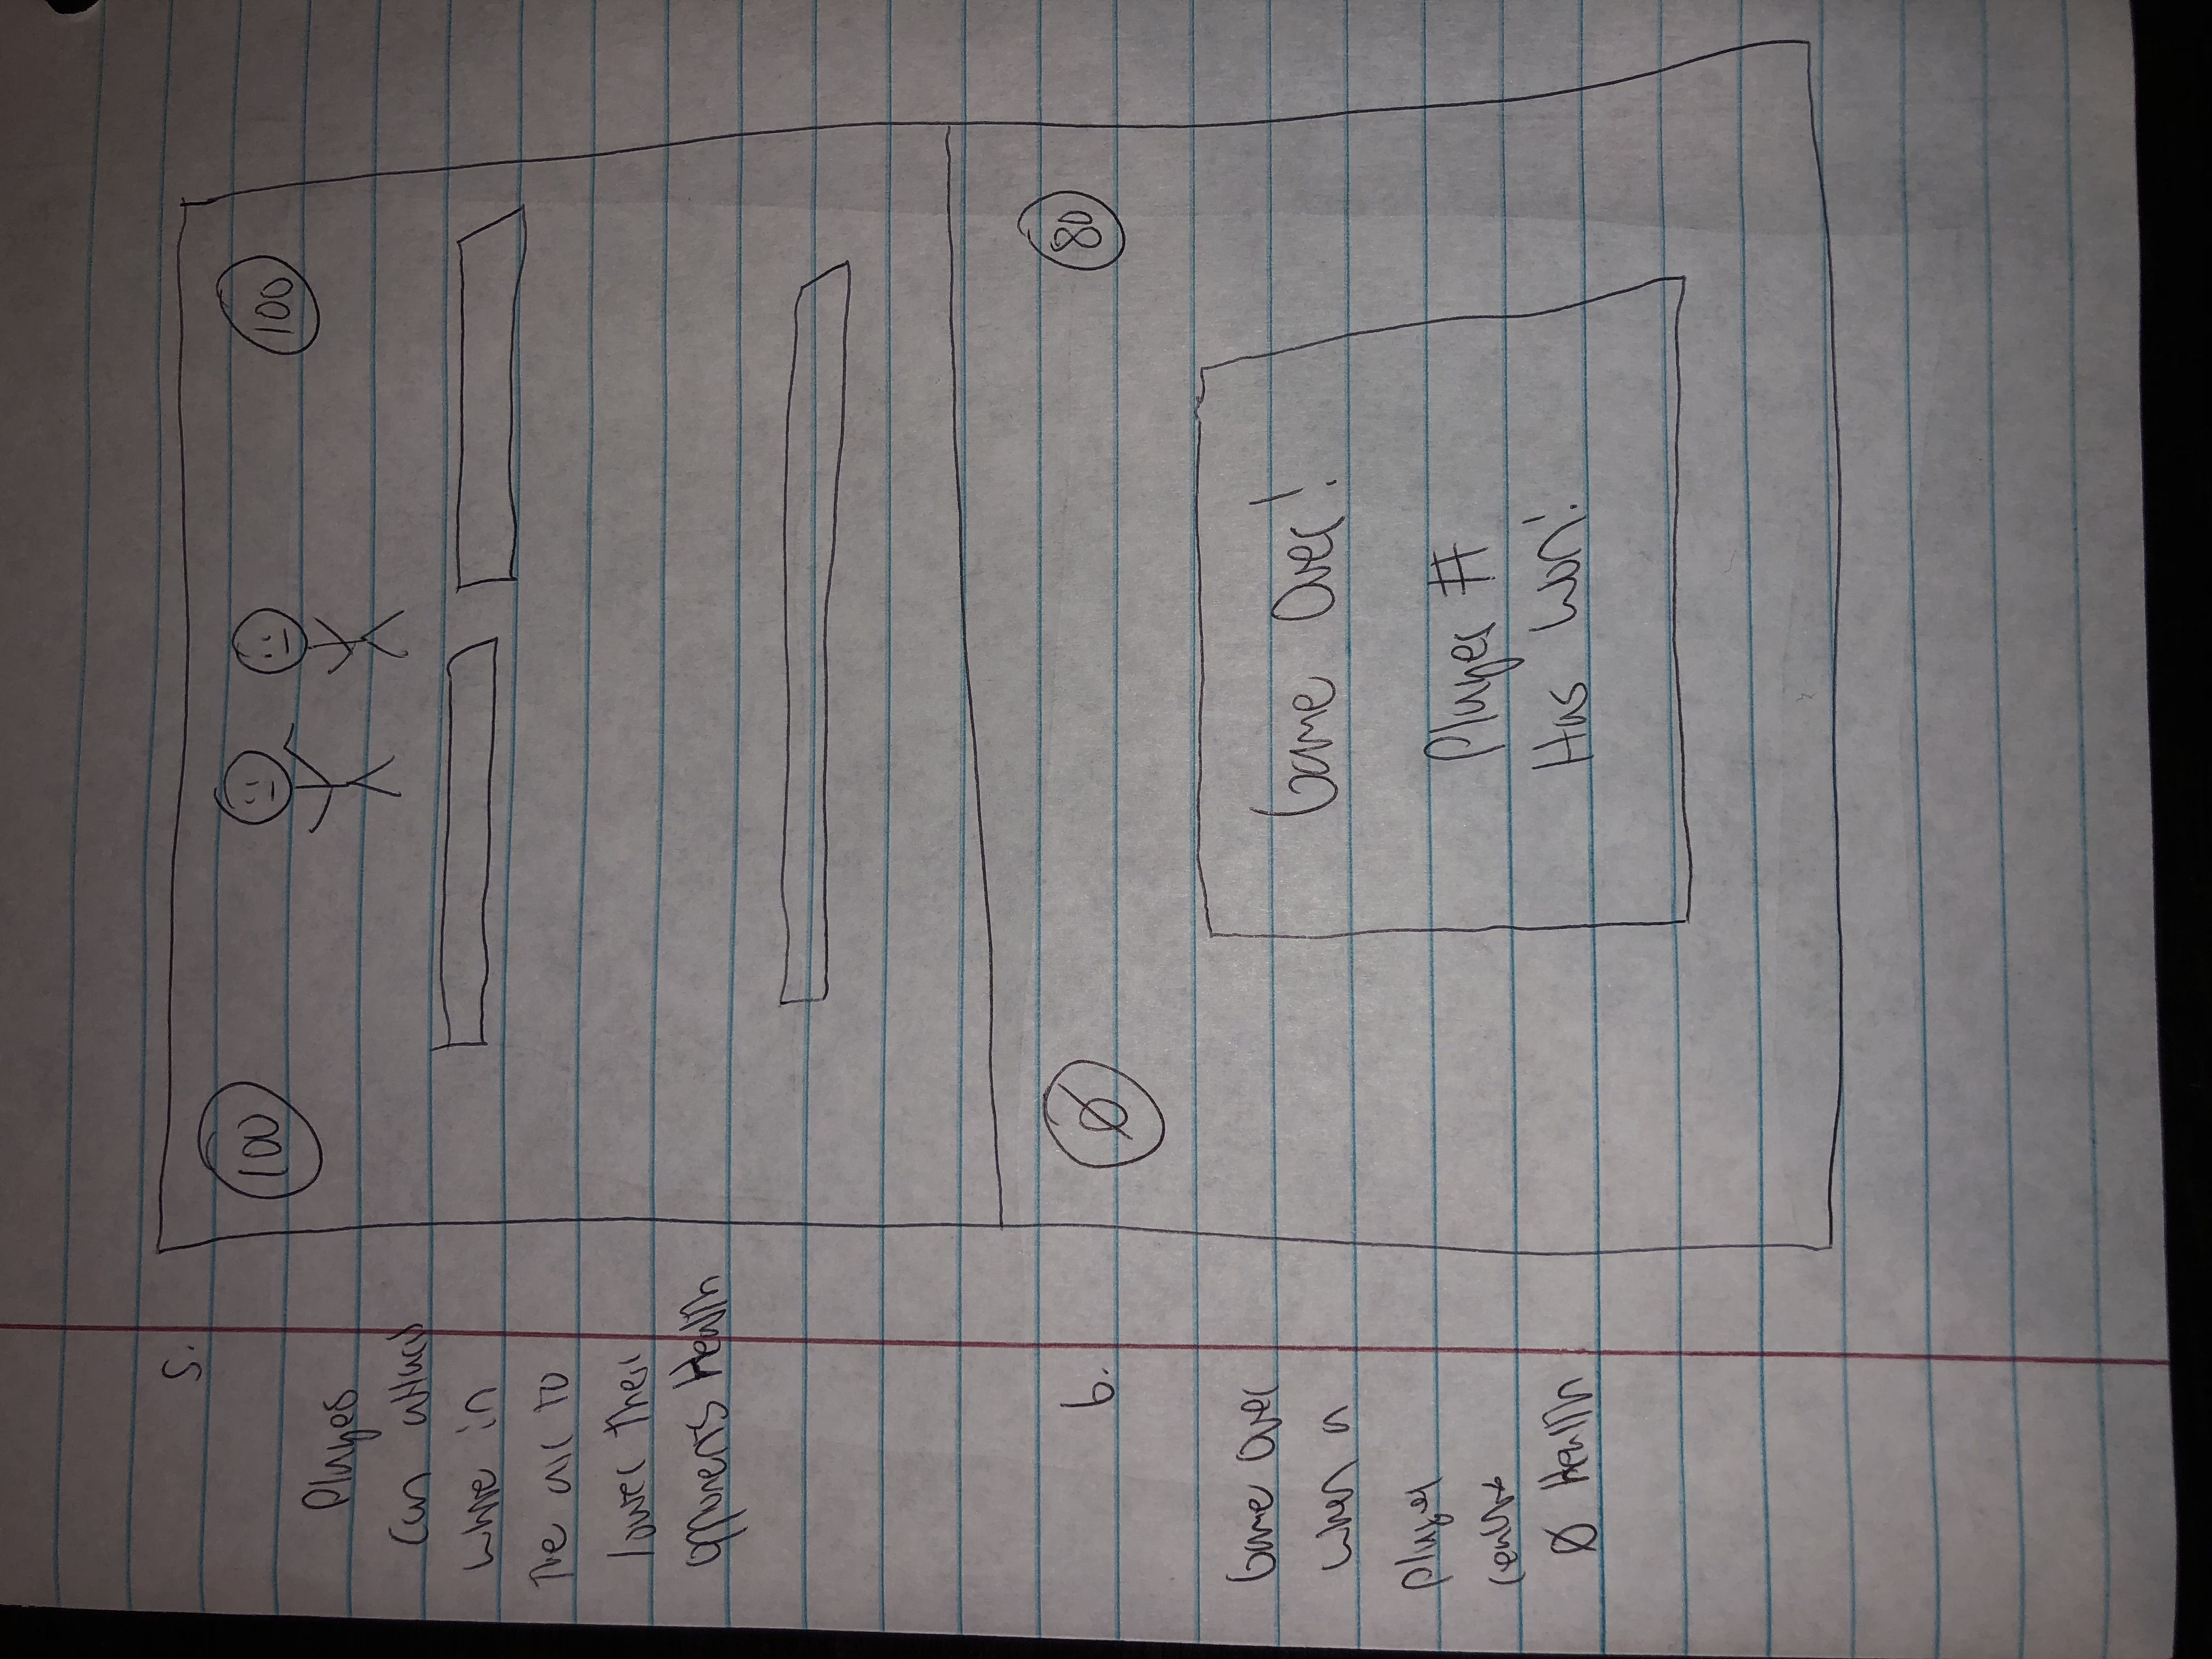 5.
100
100
Players
Can attack
while in
The air to
lower their
opponents Health
6.
Ø
80
Game Over
when a
player
reaches
Ø Health
Game Over!
Player #
Has Won!